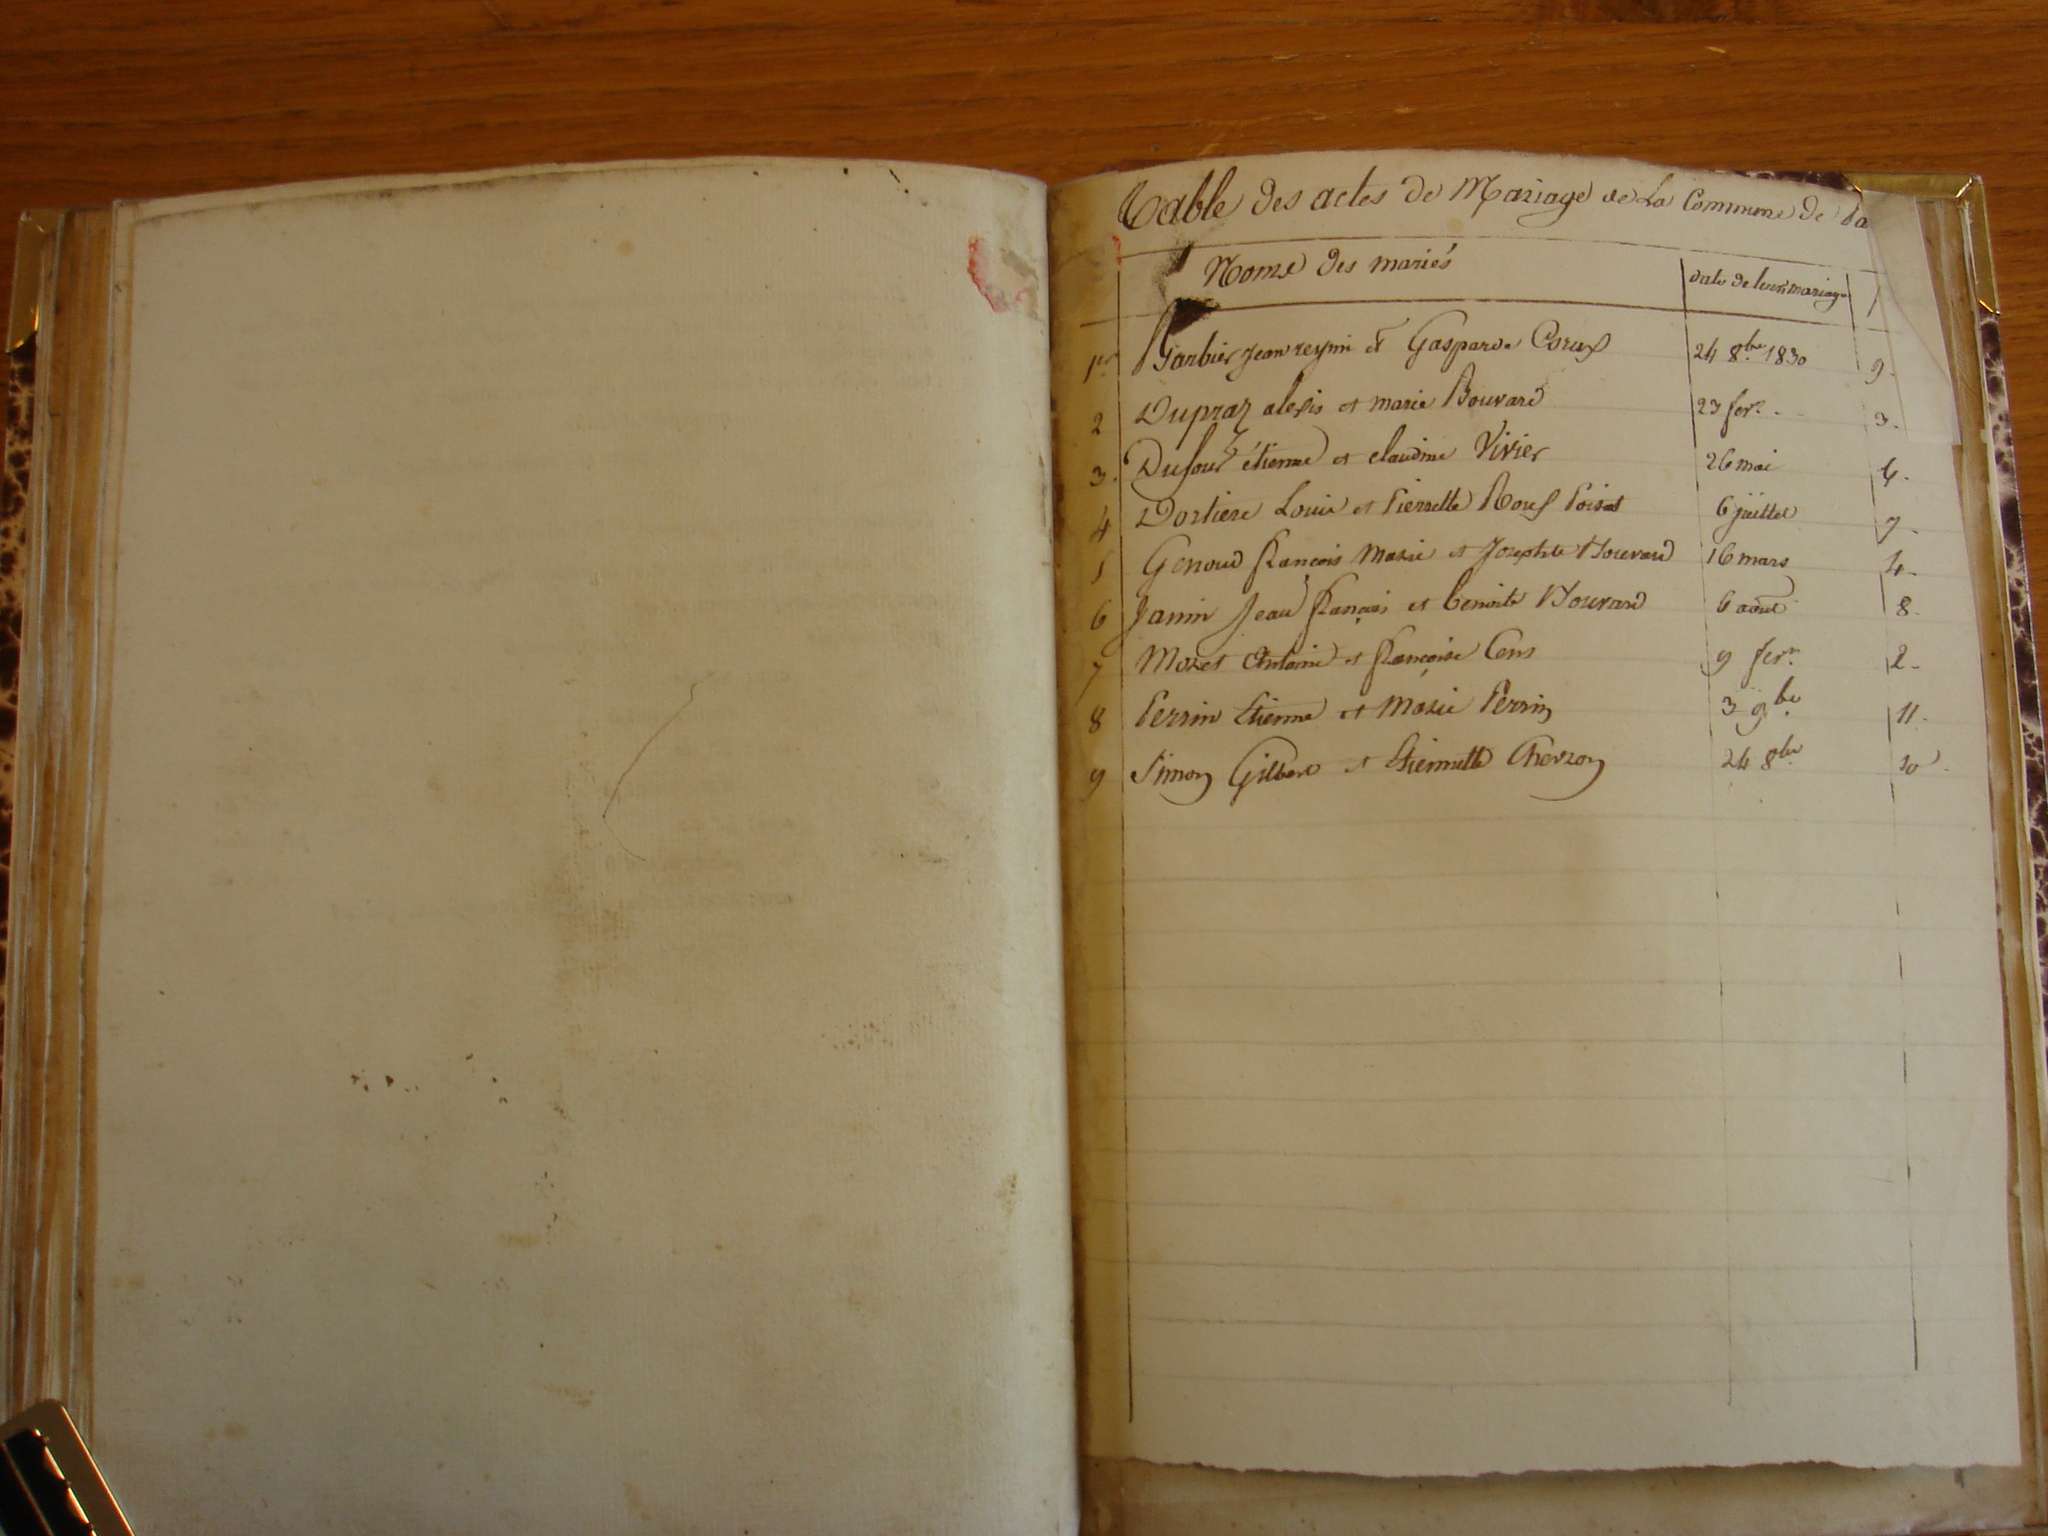 Table des actes de Mariage de La Commune de
Noms des mariés date de leur mariage
1er Barbier jean et Gasparde 24 8bre 1830 9.
2 Dupraz alexis et marie Bouvard 23 fevr. 3.
3. Dufour étienne et claudine Vivier 26 mai 6.
4 Dortiere Louis et Pierrette Roux Poizat 6 juillet 7.
5 Genoud françois Marie et Josephte Bouvard 16 mars 4.
6 Janin Jean françois et benoite Bouvard 6 aout 8.
7 Morel Antoine et françoise 9 fevr. 2.
8 Perrin Etienne et Marie Perrin 3 9bre 11.
9 Simon Gilbert et Etiennette 24 8bre 10.